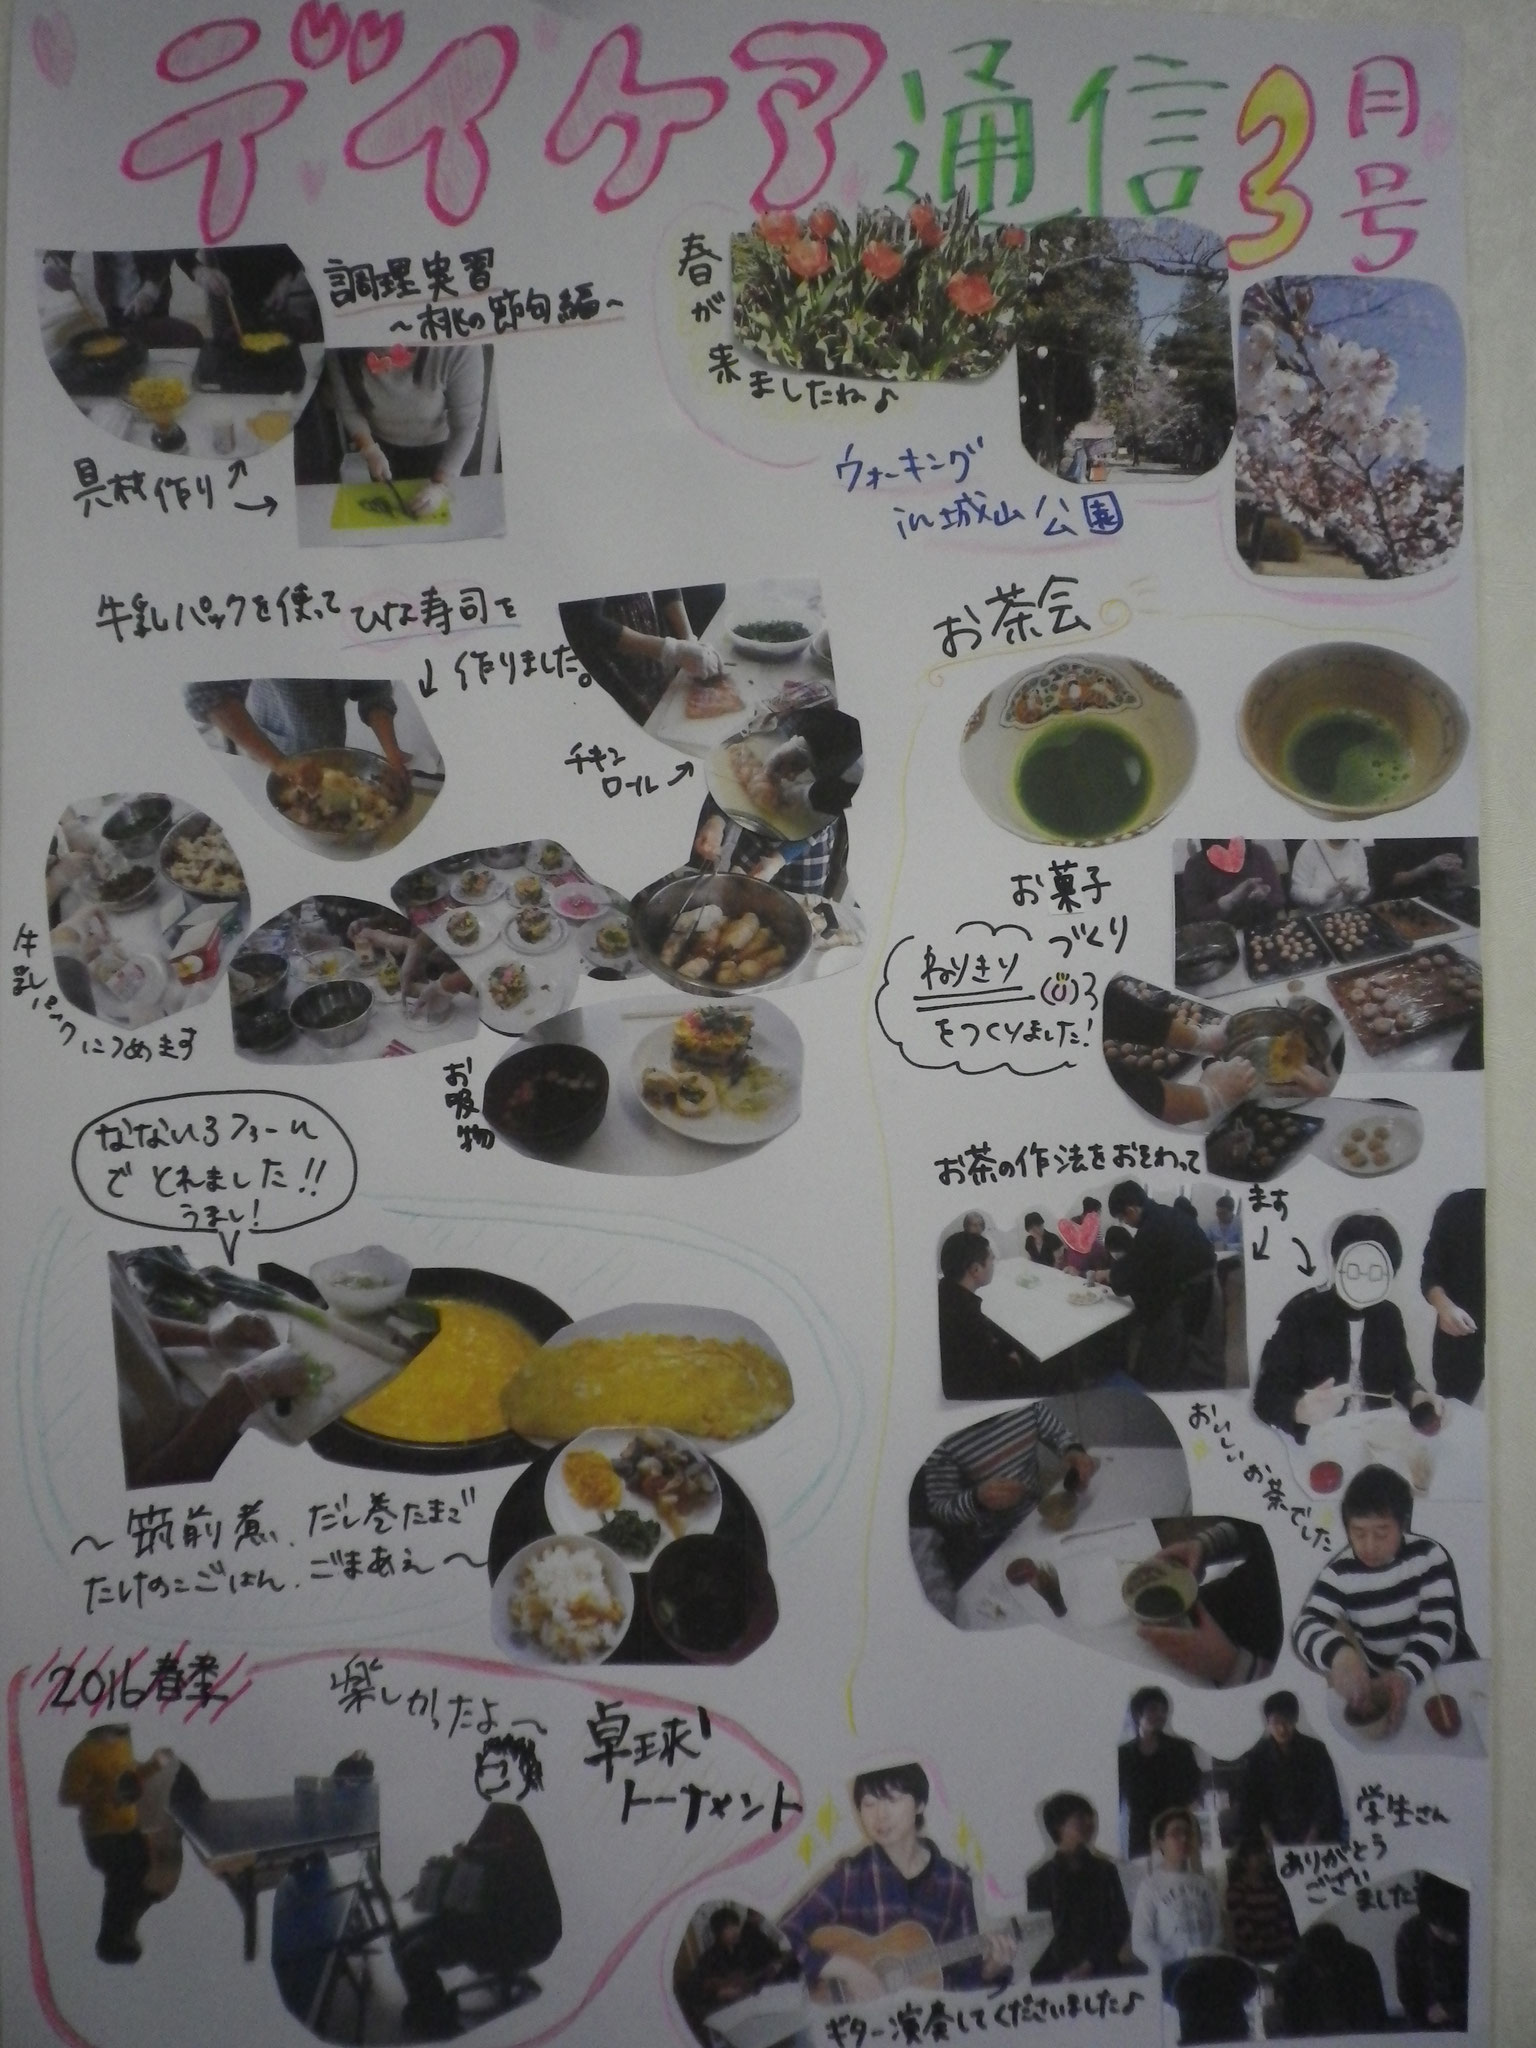 デイケア通信3月号
調理実習
～桃の節句編～
具材作り
春が来ましたね♪
ウォーキング
in城山公園
牛乳パックを使ってひな寿司を
作りました。
チキン
ロール
牛乳パックにつめます
お吸物
お茶会
お菓子
づくり
ねりきり
をつくりました!
お茶の作法をおそわって
ます
おいしいお茶でした
なないろファーム
でとれました!!
うまし!
～筑前煮、だし巻たまご
たけのこごはん、ごまあえ～
2016春季
楽しかったよ～
卓球
トーナメント
学生さん
ありがとう
ござい
ました!
ギター演奏してくださいました♪